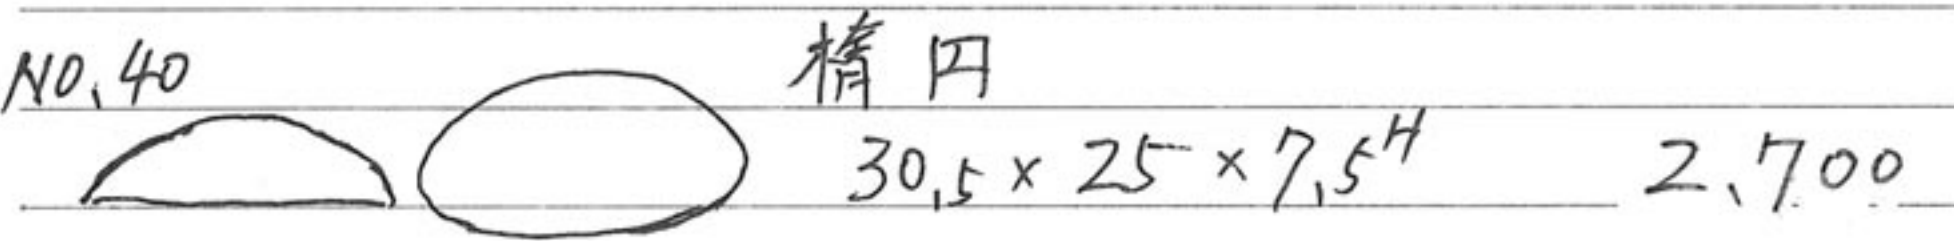 NO.40 楕円
30.5 × 25 × 7.5H 2,700